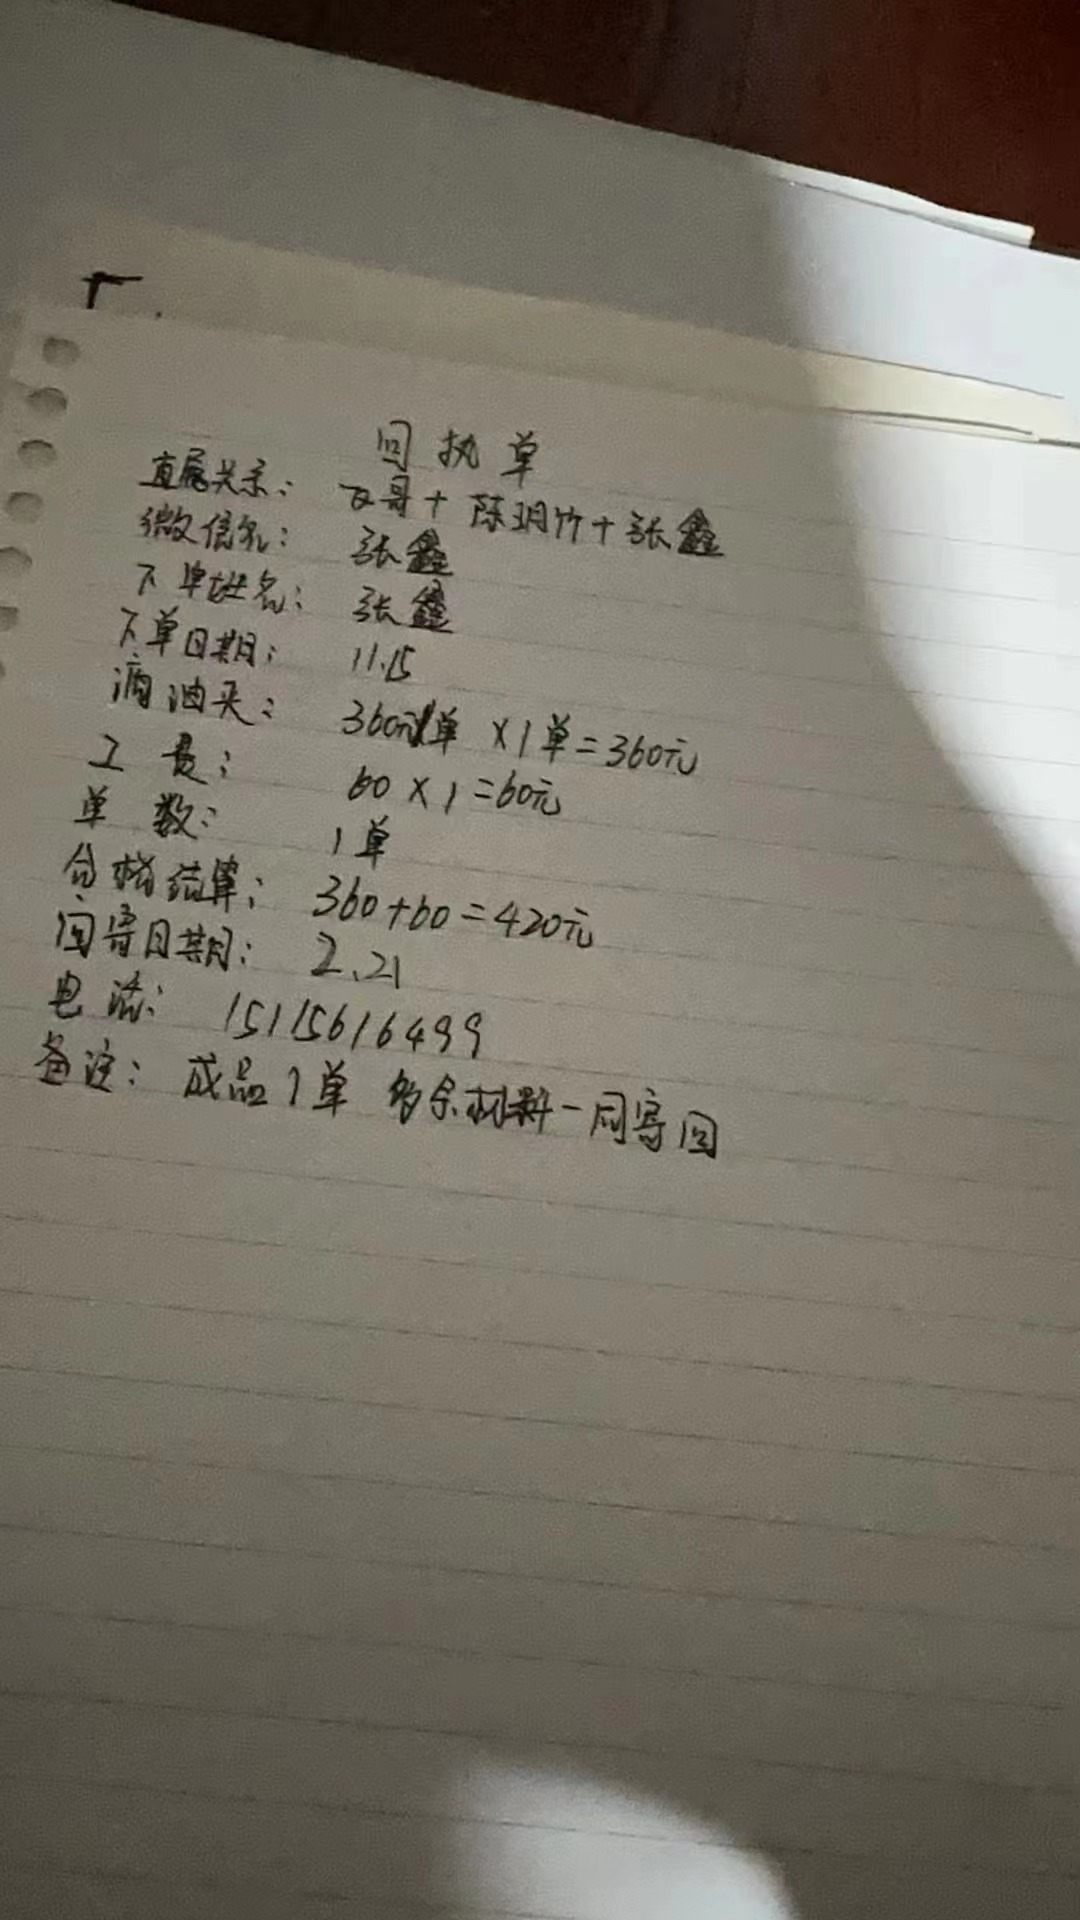 回执单
直属关系: 飞哥+陈玥竹+张鑫
微信名: 张鑫
下单姓名: 张鑫
下单日期: 11.15
滴油夹: 360元/单 ×1单=360元
工费: 60×1=60元
单数: 1单
合格结算: 360+60=420元
回寄日期: 2.21
电话: 15115616499
备注: 成品1单 多余材料一同寄回